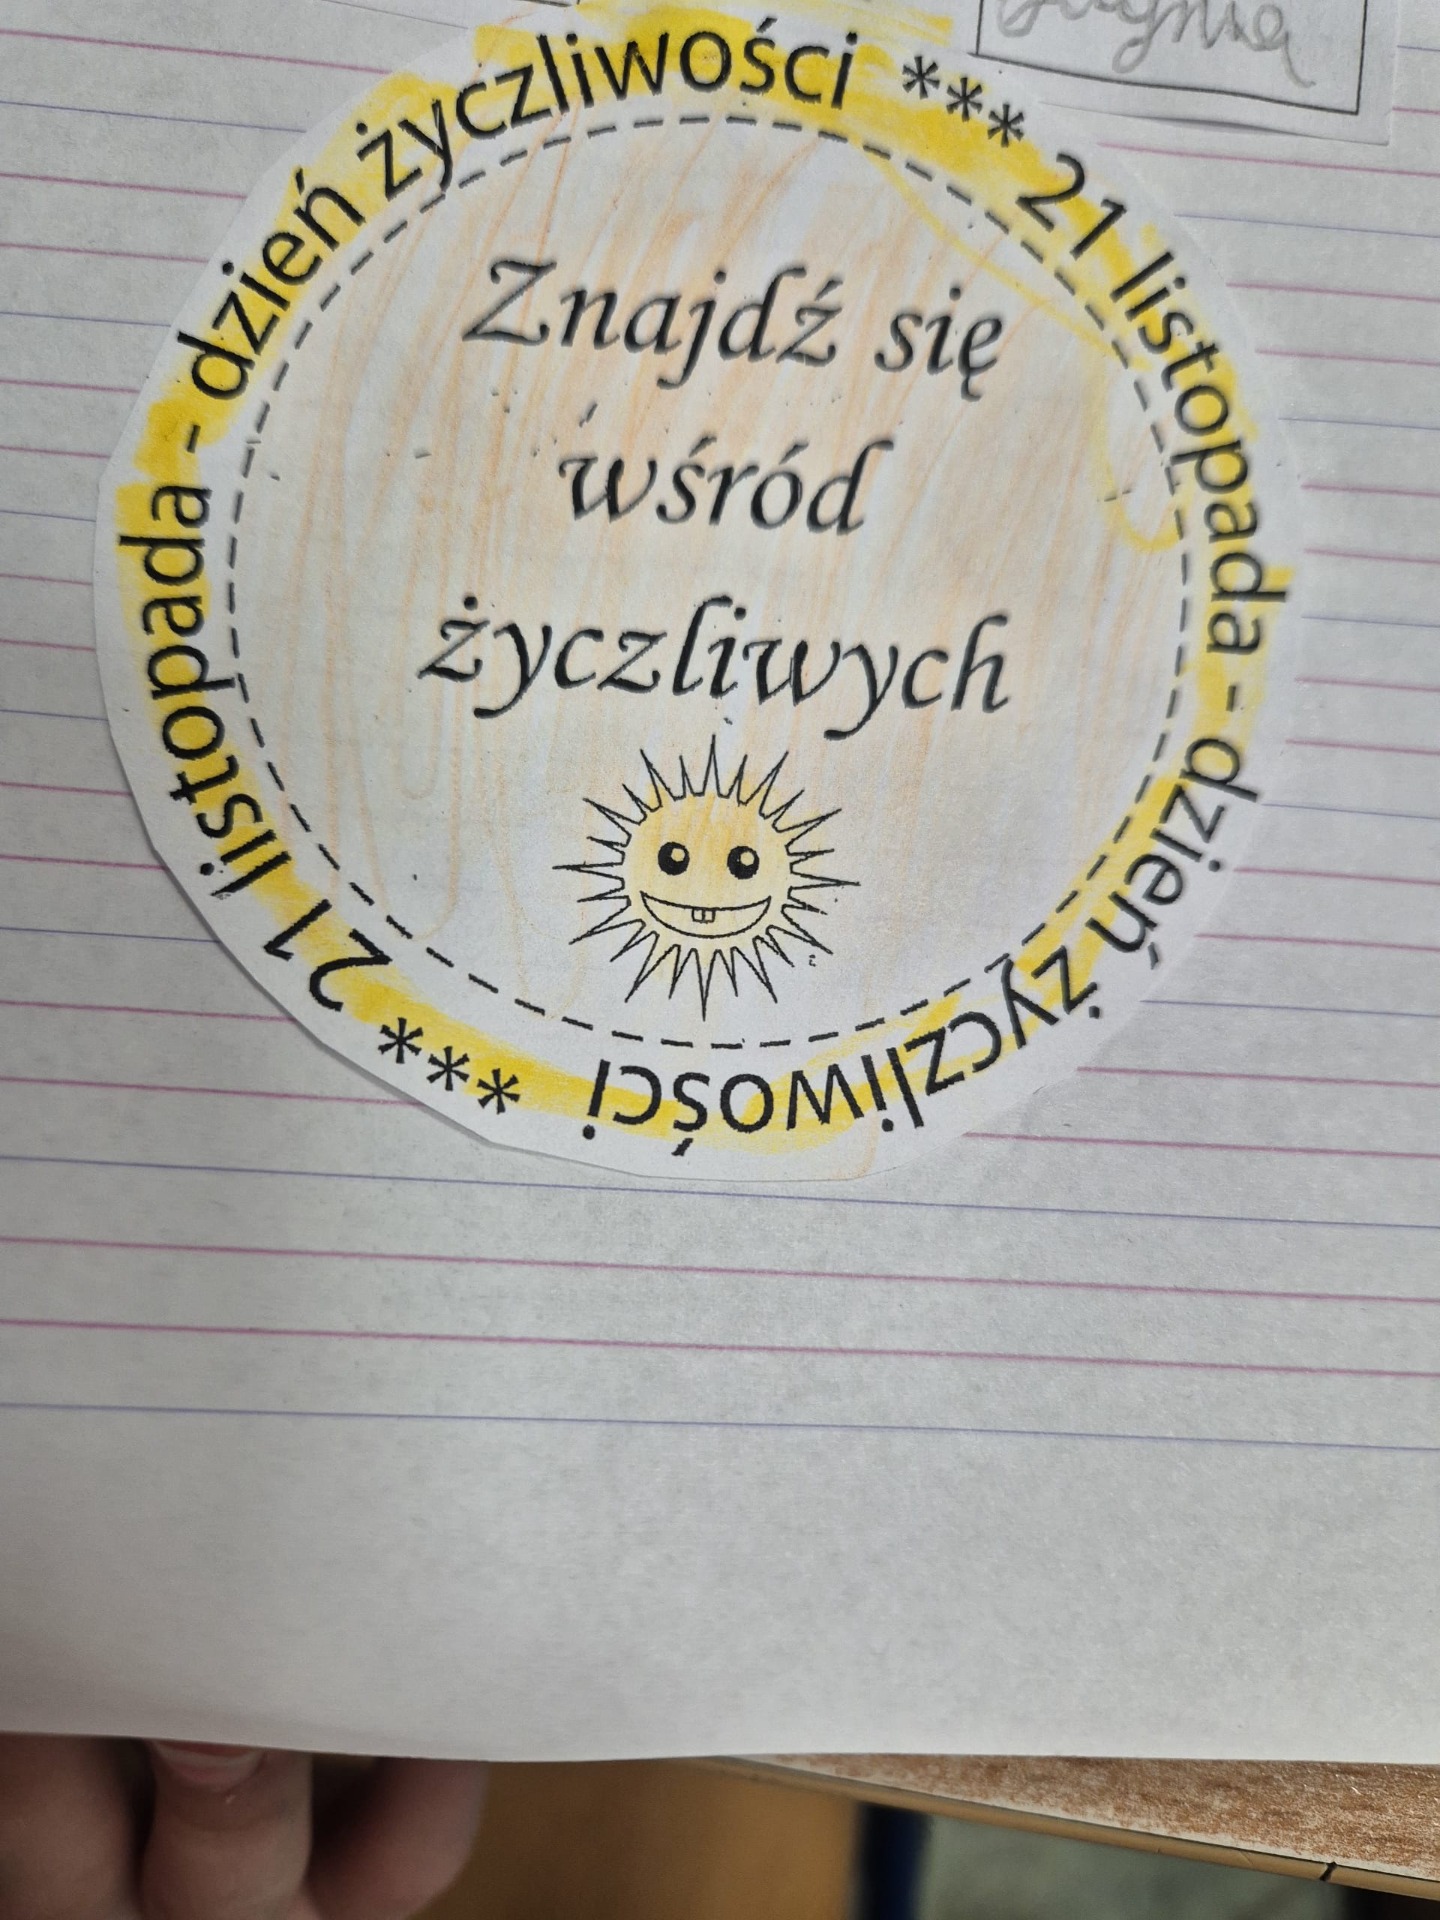 21 listopada - dzień życzliwości *** 21 listopada - dzień życzliwości ***
Znajdź się
wśród
życzliwych